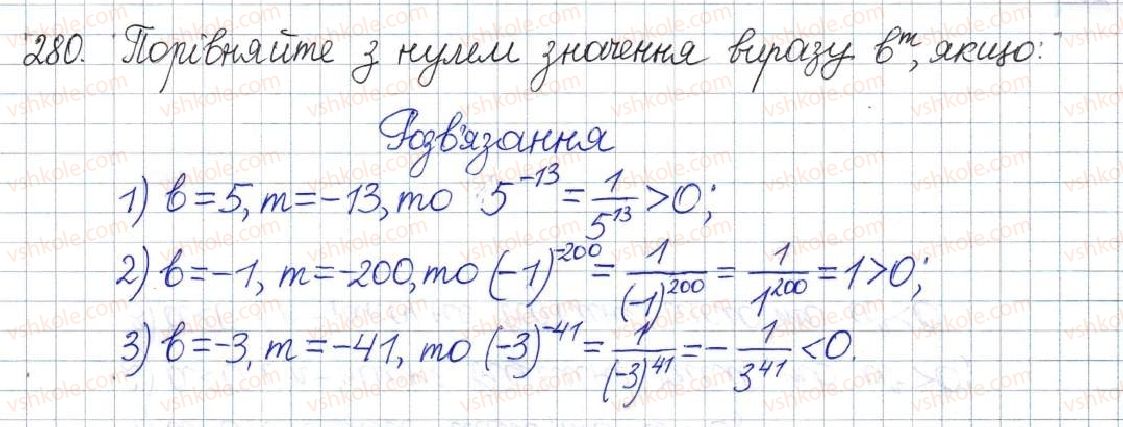 280. Порівняйте з нулем значення виразу b^m, якщо:
Розв'язання
1) b = 5, m = -13, то 5^{-13} = \frac{1}{5^{13}} > 0;
2) b = -1, m = -200, то (-1)^{-200} = \frac{1}{(-1)^{200}} = \frac{1}{1^{200}} = 1 > 0;
3) b = -3, m = -41, то (-3)^{-41} = \frac{1}{(-3)^{41}} = -\frac{1}{3^{41}} < 0.
vshkole.com